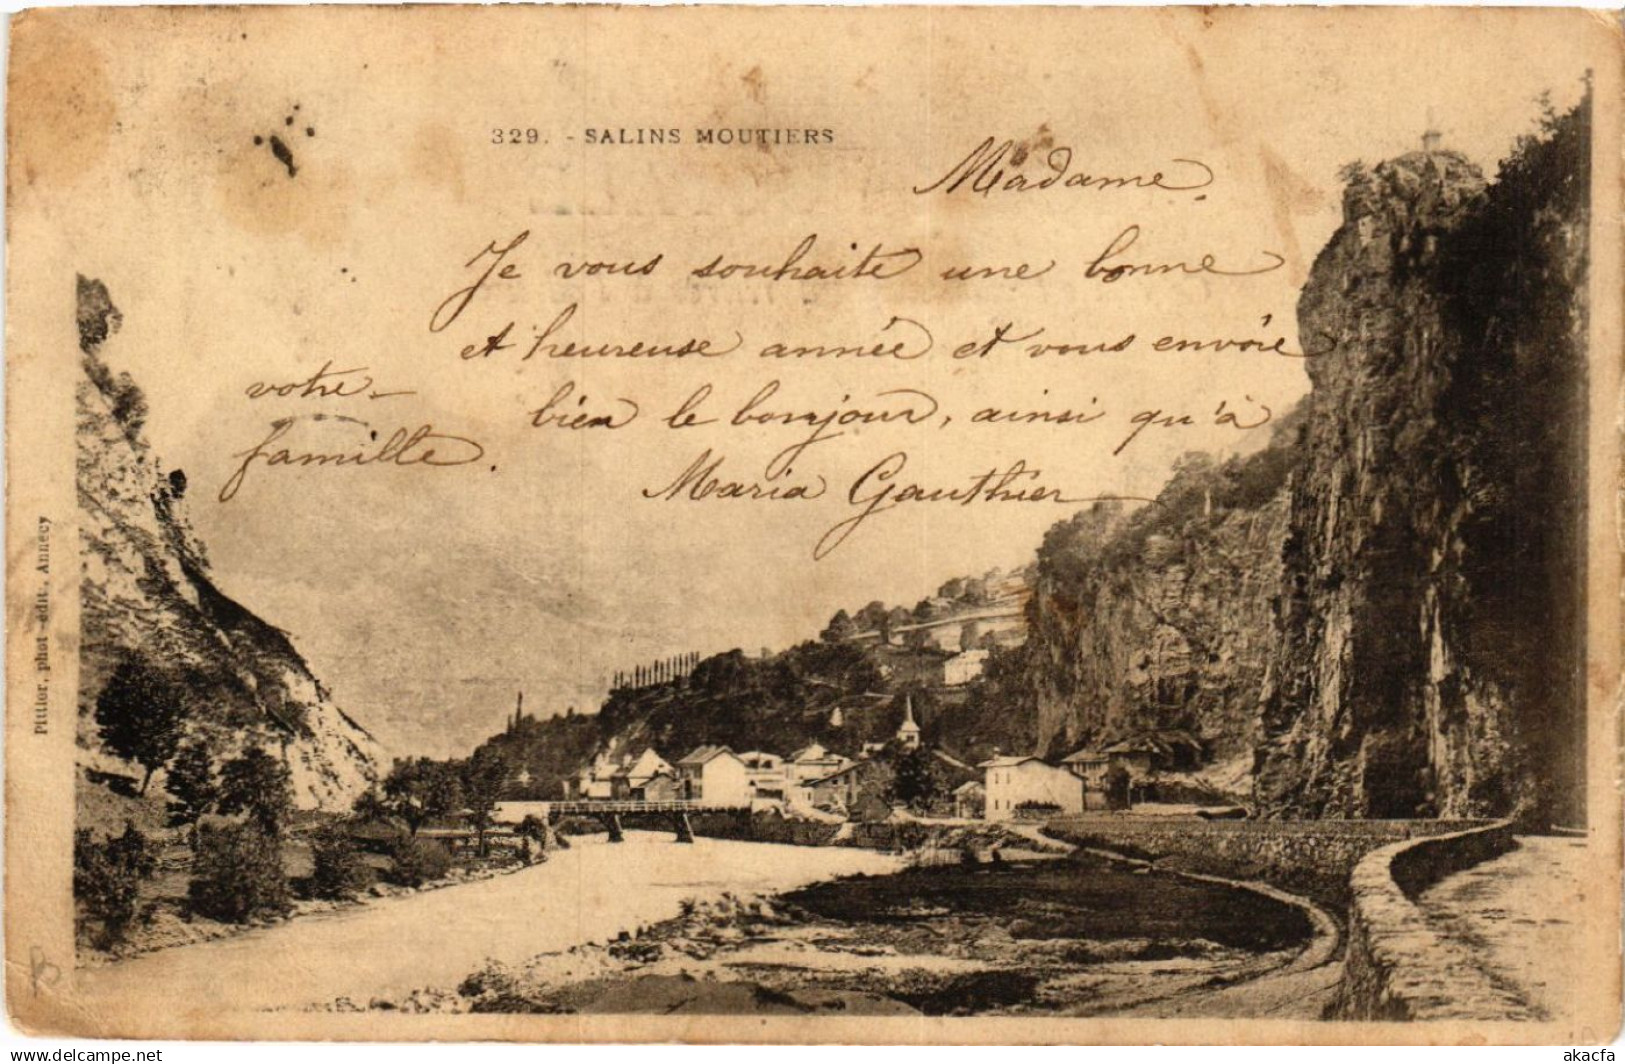 329. - SALINS MOUTIERS
Madame
Je vous souhaite une bonne
et heureuse année et vous envoie
bien le bonjour, ainsi qu'à
votre
famille.
Maria Gauthier
Pittier, phot-édit. Annecy
akacfa